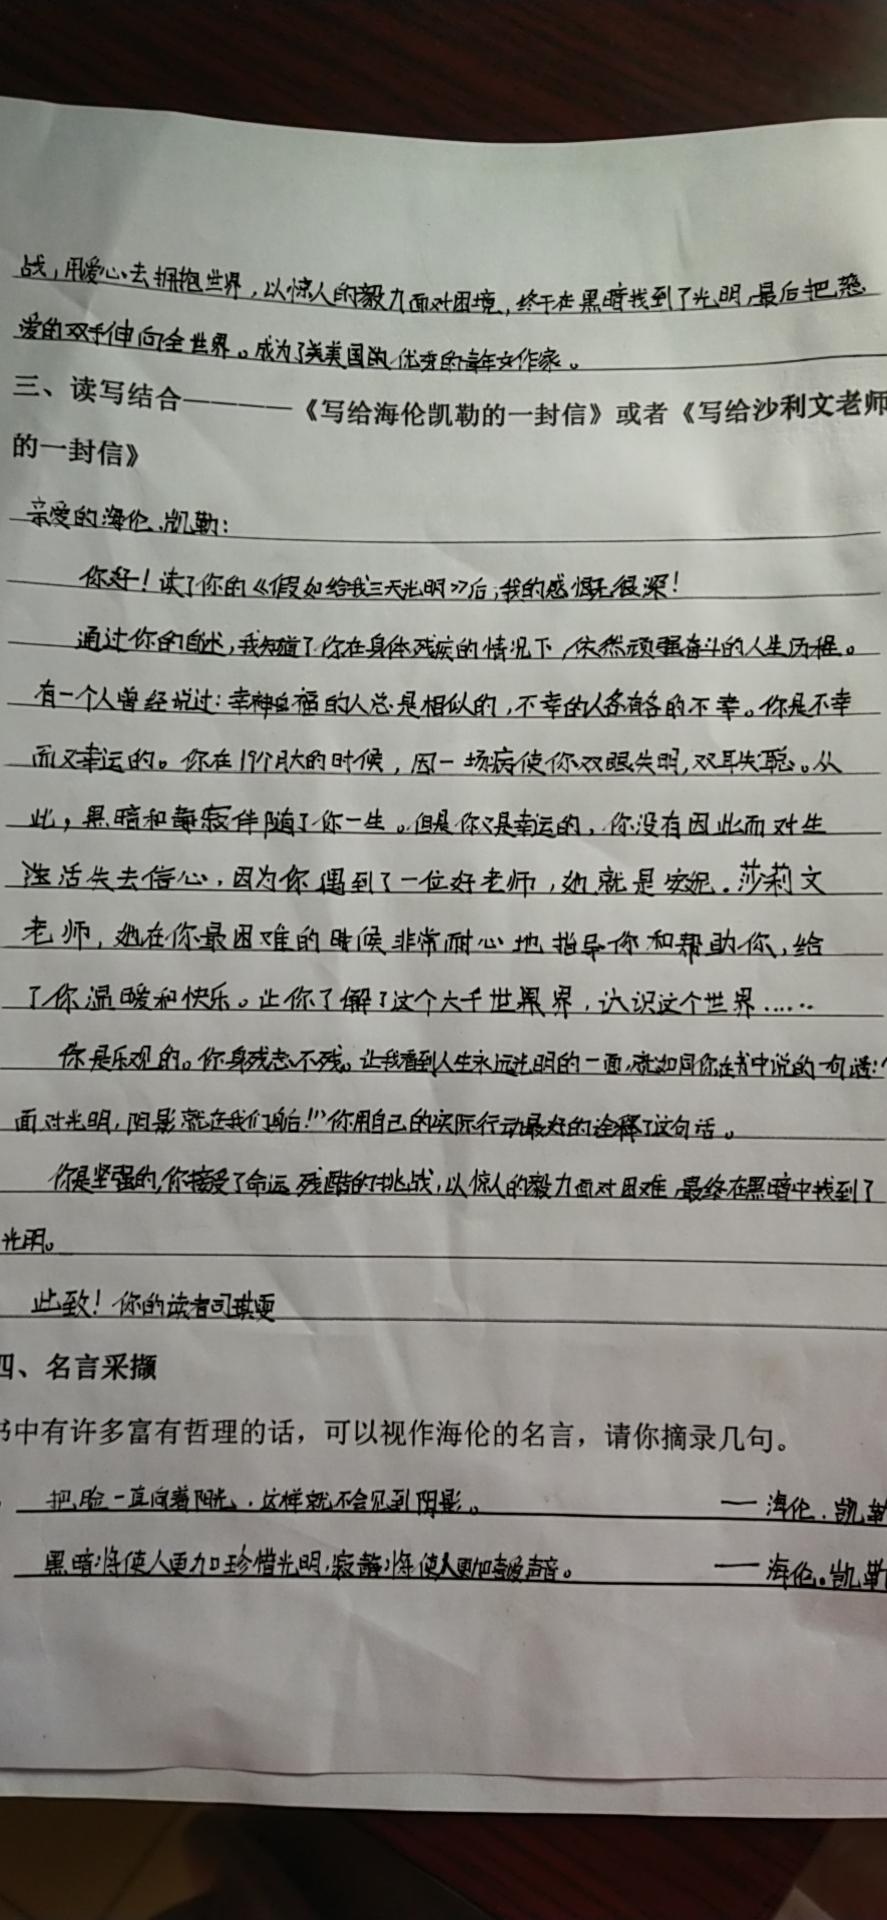 战，用爱心去拥抱世界，以惊人的毅力面对困境，终于在黑暗找到了光明，最后把慈
爱的双手伸向全世界。成为了美国的优秀的青年女作家。
三、读写结合————《写给海伦凯勒的一封信》或者《写给沙利文老师
的一封信》
亲爱的海伦.凯勒：
你好！读了你的《假如给我三天光明》后，我的感慨很深！
通过你的自述，我知道了你在身体残疾的情况下，依然顽强奋斗的人生历程。
有一个人曾经说过：幸福的人总是相似的，不幸的人各有各的不幸。你是不幸
而又幸运的。你在19个月大的时候，因一场病使你双眼失明，双耳失聪。从
此，黑暗和静寂伴随了你一生。但是你又是幸运的，你没有因此而对生
活失去信心，因为你遇到了一位好老师，她就是安妮.莎莉文
老师，她在你最困难的时候非常耐心地指导你和帮助你，给
了你温暖和快乐。让你了解了这个大千世界，认识这个世界……
你是乐观的。你身残志不残。让我看到人生永远光明的一面，就如同你在书中说的一句话：“
面对光明，阴影就在我们身后！”你用自己的实际行动最好的诠释了这句话。
你是坚强的，你接受了命运残酷的挑战，以惊人的毅力面对困难，最终在黑暗中找到了
光明。
此致！你的读者司琪雯
四、名言采撷
书中有许多富有哲理的话，可以视作海伦的名言，请你摘录几句。
把脸一直向着阳光，这样就不会见到阴影。 —海伦.凯勒
黑暗将使人更加珍惜光明，寂静将使人更加喜爱声音。 —海伦。凯勒